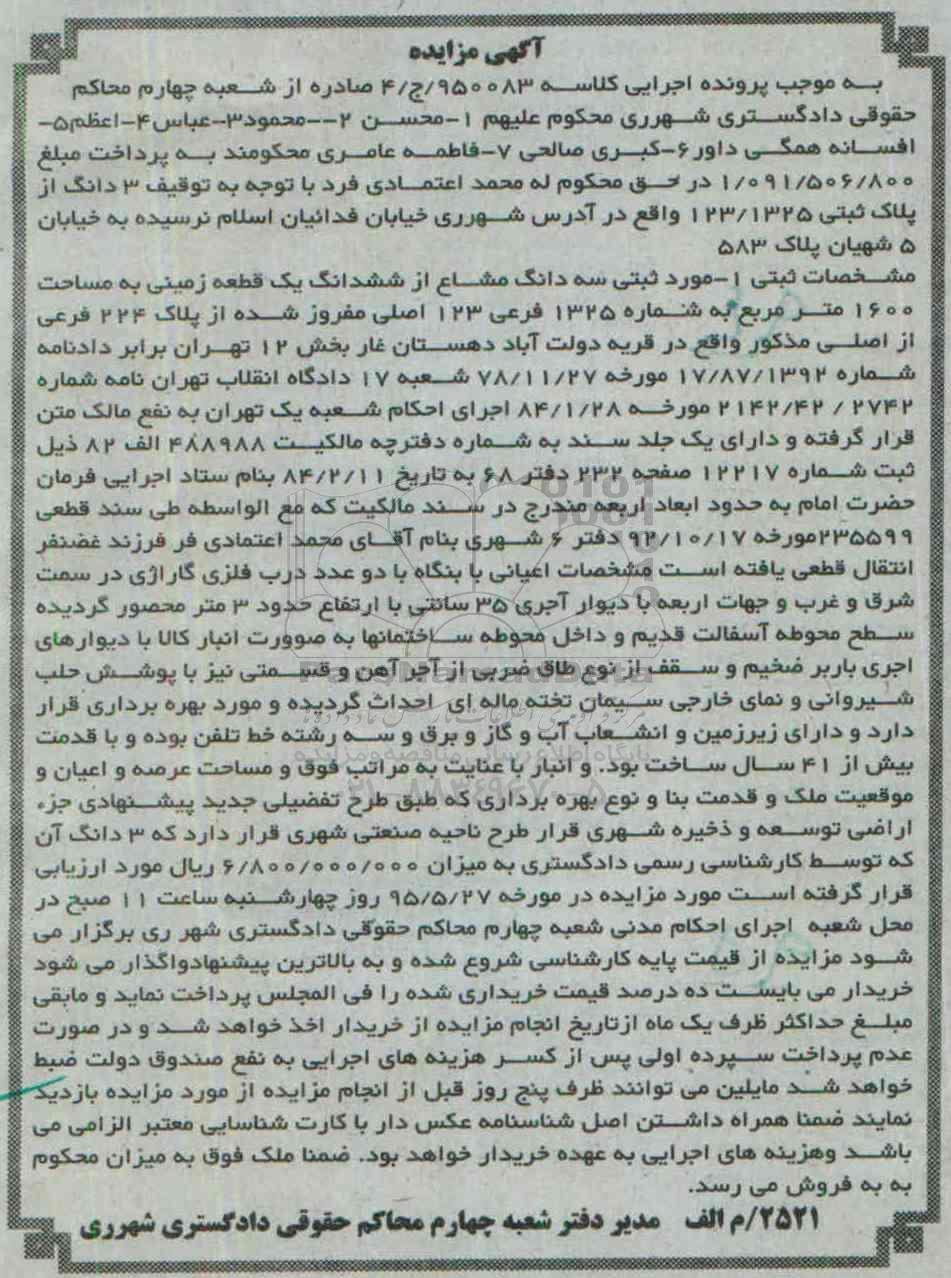 آگهی مزایده
به موجب پرونده اجرایی کلاسه ۹۵۰۰۸۳/ج/۴ صادره از شعبه چهارم محاکم
حقوقی دادگستری شهرری محکوم علیهم ۱-محسن ۲--محمود۳-عباس۴-اعظم۵-
افسانه همگی داور۶-کبری صالحی ۷-فاطمه عامری محکومند به پرداخت مبلغ
۱/۰۹۱/۵۰۶/۸۰۰ در حق محکوم له محمد اعتمادی فرد با توجه به توقیف ۳ دانگ از
پلاک ثبتی ۱۲۳/۱۳۲۵ واقع در آدرس شهرری خیابان فدائیان اسلام نرسیده به خیابان
۵ شهیان پلاک ۵۸۳
مشخصات ثبتی ۱-مورد ثبتی سه دانگ مشاع از ششدانگ یک قطعه زمینی به مساحت
۱۶۰۰ متر مربع به شماره ۱۳۲۵ فرعی ۱۲۳ اصلی مفروز شده از پلاک ۲۲۴ فرعی
از اصلی مذکور واقع در قریه دولت آباد دهستان غار بخش ۱۲ تهران برابر دادنامه
شماره ۱۷/۸۷/۱۳۹۲ مورخه ۷۸/۱۱/۲۷ شعبه ۱۷ دادگاه انقلاب تهران نامه شماره
۲۷۴۲ / ۲۱۴۲/۴۲ مورخه ۸۴/۱/۲۸ اجرای احکام شعبه یک تهران به نفع مالک متن
قرار گرفته و دارای یک جلد سند به شماره دفترچه مالکیت ۴۸۸۹۸۸ الف ۸۲ ذیل
ثبت شماره ۱۲۲۱۷ صفحه ۲۳۲ دفتر ۶۸ به تاریخ ۸۴/۲/۱۱ بنام ستاد اجرایی فرمان
حضرت امام به حدود ابعاد اربعه مندرج در سند مالکیت که مع الواسطه طی سند قطعی
۲۳۵۵۹۹مورخه ۹۲/۱۰/۱۷ دفتر ۶ شهری بنام آقای محمد اعتمادی فر فرزند غضنفر
انتقال قطعی یافته است مشخصات اعیانی با بنگاه با دو عدد درب فلزی گاراژی در سمت
شرق و غرب و جهات اربعه با دیوار آجری ۳۵ سانتی با ارتفاع حدود ۳ متر محصور گردیده
سطح محوطه آسفالت قدیم و داخل محوطه ساختمانها به صوورت انبار کالا با دیوارهای
اجری باربر ضخیم و سقف از نوع طاق ضربی از آجر آهن و قسمتی نیز با پوشش حلب
شیروانی و نمای خارجی سیمان تخته ماله ای احداث گردیده و مورد بهره برداری قرار
دارد و دارای زیرزمین و انشعاب آب و گاز و برق و سه رشته خط تلفن بوده و با قدمت
بیش از ۴۱ سال ساخت بود. و انبار با عنایت به مراتب فوق و مساحت عرصه و اعیان و
موقعیت ملک و قدمت بنا و نوع بهره برداری که طبق طرح تفضیلی جدید پیشنهادی جزء
اراضی توسعه و ذخیره شهری قرار طرح ناحیه صنعتی شهری قرار دارد که ۳ دانگ آن
که توسط کارشناسی رسمی دادگستری به میزان ۶/۸۰۰/۰۰۰/۰۰۰ ریال مورد ارزیابی
قرار گرفته است مورد مزایده در مورخه ۹۵/۵/۲۷ روز چهارشنبه ساعت ۱۱ صبح در
محل شعبه اجرای احکام مدنی شعبه چهارم محاکم حقوقی دادگستری شهر ری برگزار می
شود مزایده از قیمت پایه کارشناسی شروع شده و به بالاترین پیشنهادواگذار می شود
خریدار می بایست ده درصد قیمت خریداری شده را فی المجلس پرداخت نماید و مابقی
مبلغ حداکثر ظرف یک ماه ازتاریخ انجام مزایده از خریدار اخذ خواهد شد و در صورت
عدم پرداخت سپرده اولی پس از کسر هزینه های اجرایی به نفع صندوق دولت ضبط
خواهد شد مایلین می توانند ظرف پنج روز قبل از انجام مزایده از مورد مزایده بازدید
نمایند ضمنا همراه داشتن اصل شناسنامه عکس دار با کارت شناسایی معتبر الزامی می
باشد وهزینه های اجرایی به عهده خریدار خواهد بود. ضمنا ملک فوق به میزان محکوم
به به فروش می رسد.
۲۵۲۱/م الف مدیر دفتر شعبه چهارم محاکم حقوقی دادگستری شهرری